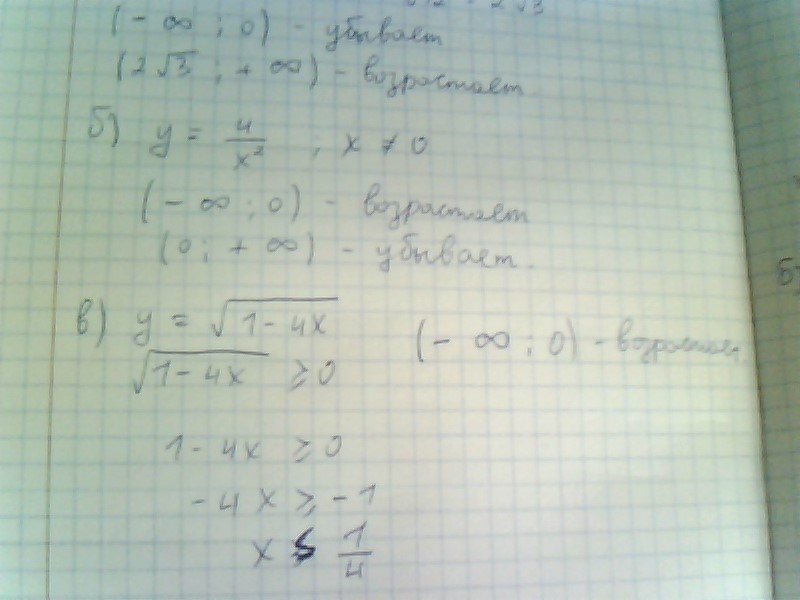 (- ∞ ; 0) - убывает
(2√3 ; + ∞) - возрастает
б) y = 4/x² , x ≠ 0
(- ∞ ; 0) - возрастает
(0 ; + ∞) - убывает.
в) y = √(1 - 4x)
(- ∞ ; 0) - возрастает
√(1 - 4x) ≥ 0
1 - 4x ≥ 0
- 4x ≥ - 1
x ≤ 1/4